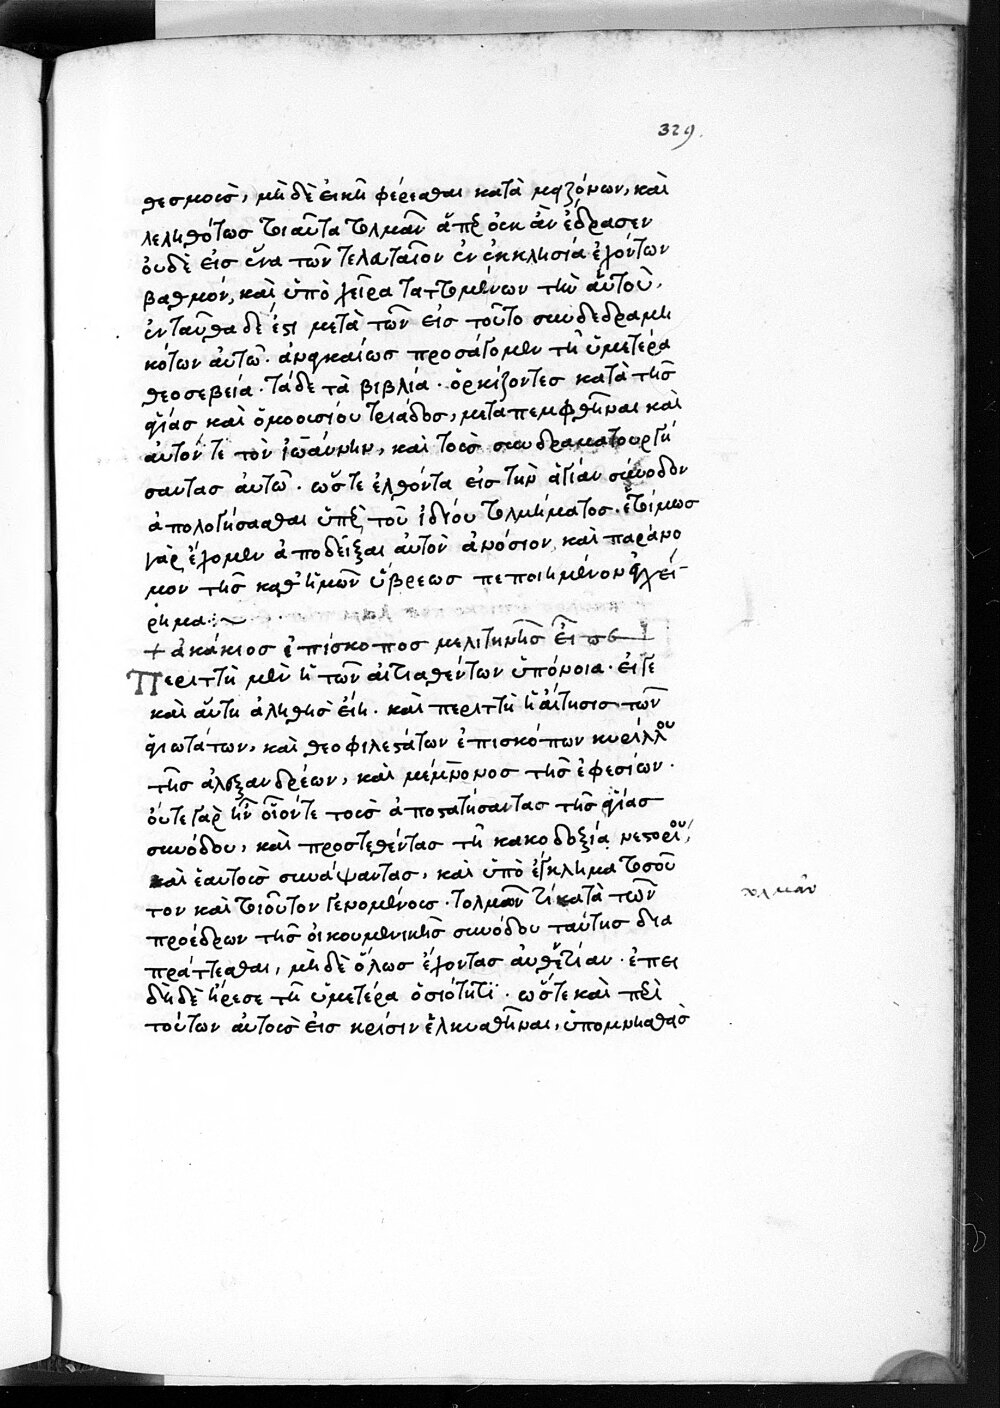 329
θεσμοῖς, μηδὲ εἰκῆ φέρεσθαι κατὰ μειζόνων, καὶ
λεληθότως τοιαῦτα τολμᾶν ἅπερ οὐκ ἂν ἔδρασεν
οὐδὲ εἰς ἕνα τῶν τελευταῖον ἐν ἐκκλησία ἐχόντων
βαθμόν, καὶ ὑπὸ χεῖρα ταττομένων τὴν αὐτοῦ.
ἐνταῦθα δέ ἐστι μετὰ τῶν εἰς τοῦτο συνδεδραμη
κότων αὐτῶ. ἀναγκαίως προσάγομεν τῆ ὑμετέρα
θεοσεβεία. τάδε τὰ βιβλία. ὁρκίζοντες κατὰ τῆς
ἁγίας καὶ ὁμοουσίου τριάδος, μεταπεμφθῆναι καὶ
αὐτόν τε τὸν ἰωάννην, καὶ τοὺς συνδραματουργή
σαντας αὐτῶ. ὥστε ἐλθόντα εἰς τὴν ἁγίαν σύνοδον
ἀπολογήσασθαι ὑπὲρ τοῦ ἰδίου τολμήματος. ἑτοίμως
γὰρ ἔχομεν ἀποδεῖξαι αὐτὸν ἀνόσιον, καὶ παράνο
μον τῆς καθ' ἡμῶν ὕβρεως πεποιημένον ἐγχεί
ρημα:~
+ ἀκάκιος ἐπίσκοπος μελιτηνῆς εἶπεν
Περιττὴ μὲν ἡ τῶν αἰτιαθέντων ὑπόνοια. εἴγε
καὶ αὕτη ἀληθὴς εἴη. καὶ περιττὴ ἡ αἴτησις τῶν
ἁγιωτάτων, καὶ θεοφιλεστάτων ἐπισκόπων κυρίλλου
τῆς ἀλεξανδρέων, καὶ μέμνονος τῆς ἐφεσίων.
οὔτε γὰρ ἦν οἷόντε τοὺς ἀποστατήσαντας τῆς ἁγίας
συνόδου, καὶ προστεθέντας τῆ κακοδοξία νεστορίου,
καὶ ἑαυτοὺς συνάψαντας, καὶ ὑπὸ ἔγκλημα τοσοῦ
τον καὶ τοιοῦτον γενομένους. τολμᾶν τι κατὰ τῶν
προέδρων τῆς οἰκουμενικῆς συνόδου ταύτης δια
πράττεσθαι, μηδὲ ὅλως ἔχοντας αὐθεντίαν. ἐπει
δὴ δὲ ἤρεσε τῆ ὑμετέρα ὁσιότητι. ὥστε καὶ περὶ
τούτων αὐτοὺς εἰς κρίσιν ἑλκυσθῆναι, ὑπομνησθὰς
τολμᾶν